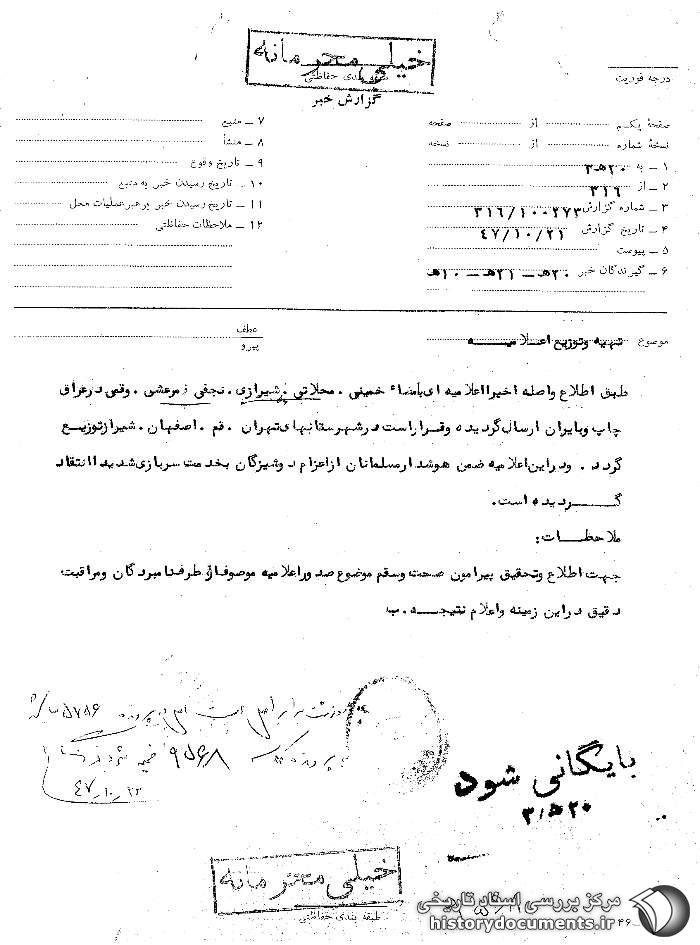 خیلی محرمانه
طبقه بندی حفاظتی
گزارش خبر
درجه فوریت
صفحهٔ یکم از صفحه
نسخهٔ شماره از نسخه
۱ ـ به ۲۰ هـ ۳
۲ ـ از ۳۱۶
۳ ـ شماره گزارش ۳۱۶/۱۰۰۲۷۳
۴ ـ تاریخ گزارش ۴۷/۱۰/۲۱
۵ ـ پیوست
۶ ـ گیرندگان خبر ۲۰هـ ـ ۲۱هـ ـ ۱۰هـ
۷ ـ منبع
۸ ـ منشأ
۹ ـ تاریخ وقوع
۱۰ ـ تاریخ رسیدن خبر به منبع
۱۱ ـ تاریخ رسیدن خبر برهبر عملیات محل
۱۲ ـ ملاحظات حفاظتی
موضوع تهیه وتوزیع اعلامیه
عطف
پیرو
طبق اطلاع واصله اخیرا اعلامیه ای بامضاء خمینی . محلاتی . شیرازی . نجفی مرعشی . وقمی درعراق
چاپ وبایران ارسال گردیده وقرار است درشهرستانهای تهران . قم . اصفهان . شیراز توزیع
گردد . ودراین اعلامیه ضمن هوشدار مسلمانان از اعزام دوشیزگان بخدمت سربازی شدیدا انتقاد
گردیده است.
ملاحظات:
جهت اطلاع وتحقیق پیرامون صحت وسقم موضوع صدور اعلامیه موصوف از طرف نامبردگان ومراقبت
دقیق دراین زمینه واعلام نتیجه. ب
پرونده ۵۷۸۶
پرونده ۹۵۶۸ ضمیمه شود
۴۷/۱۰/۲۲
بایگانی شود
۲۰ هـ ۳
خیلی محرمانه
طبقه بندی حفاظتی
۴۶
مرکز بررسی اسناد تاریخی
historydocuments.ir